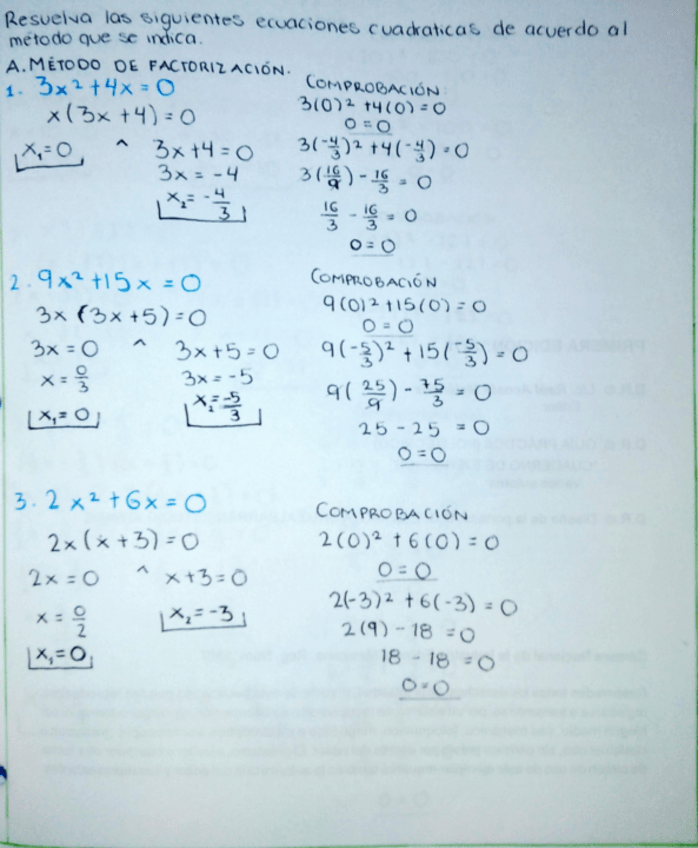 Resuelva las siguientes ecuaciones cuadraticas de acuerdo al
método que se indica.
A. MÉTODO DE FACTORIZACIÓN.
1. 3x² + 4x = 0
x(3x + 4) = 0
x₁ = 0 ^ 3x + 4 = 0
3x = -4
x₂ = -4/3
COMPROBACIÓN:
3(0)² + 4(0) = 0
0 = 0
3(-4/3)² + 4(-4/3) = 0
3(16/9) - 16/3 = 0
16/3 - 16/3 = 0
0 = 0
2. 9x² + 15x = 0
3x (3x + 5) = 0
3x = 0 ^ 3x + 5 = 0
x = 0/3 3x = -5
x₁ = 0 x₂ = -5/3
COMPROBACIÓN
9(0)² + 15(0) = 0
0 = 0
9(-5/3)² + 15(-5/3) = 0
9(25/9) - 75/3 = 0
25 - 25 = 0
0 = 0
3. 2x² + 6x = 0
2x(x + 3) = 0
2x = 0 ^ x + 3 = 0
x = 0/2 x₂ = -3
x₁ = 0
COMPROBACIÓN
2(0)² + 6(0) = 0
0 = 0
2(-3)² + 6(-3) = 0
2(9) - 18 = 0
18 - 18 = 0
0 = 0